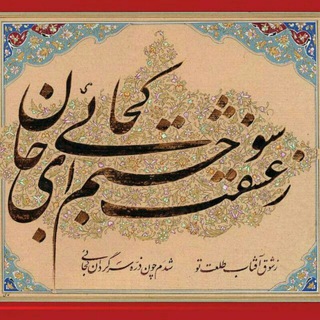 ز عشقت سوختم ای جان کجائی
ز شوق آفتاب طلعت تو شدم چون ذره سرگردان کجائی